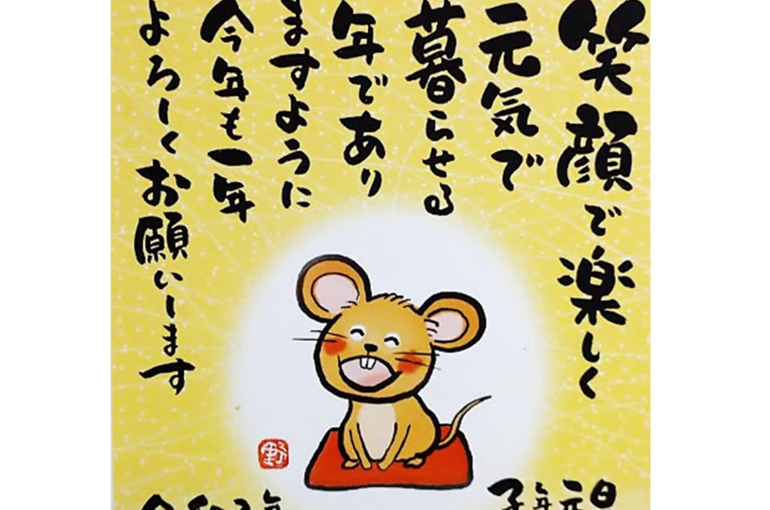 笑顔で楽しく
元気で
暮らせる
年であり
ますように
今年も一年
よろしくお願いします
野
子年元旦